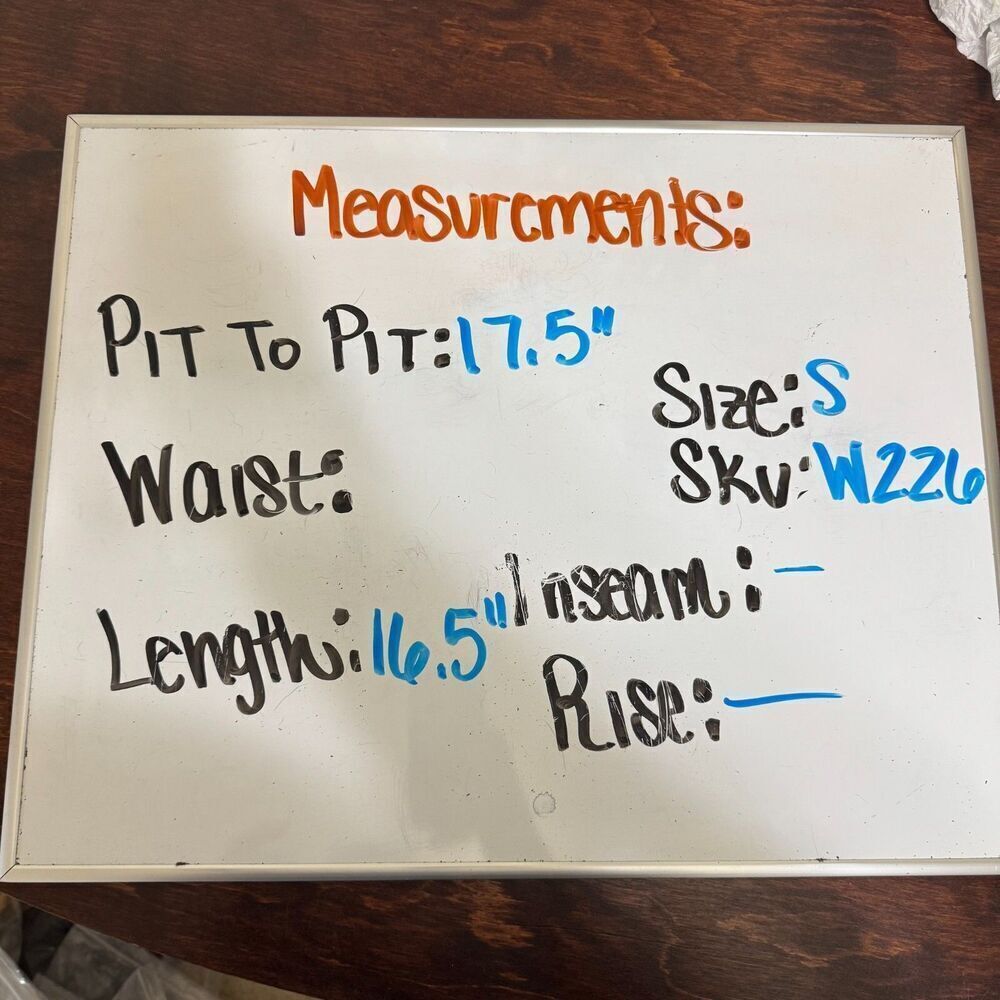 Measurements:
PIT TO PIT: 17.5"
Size: S
Waist:
SKU: W226
Inseam: —
Length: 16.5"
Rise: —